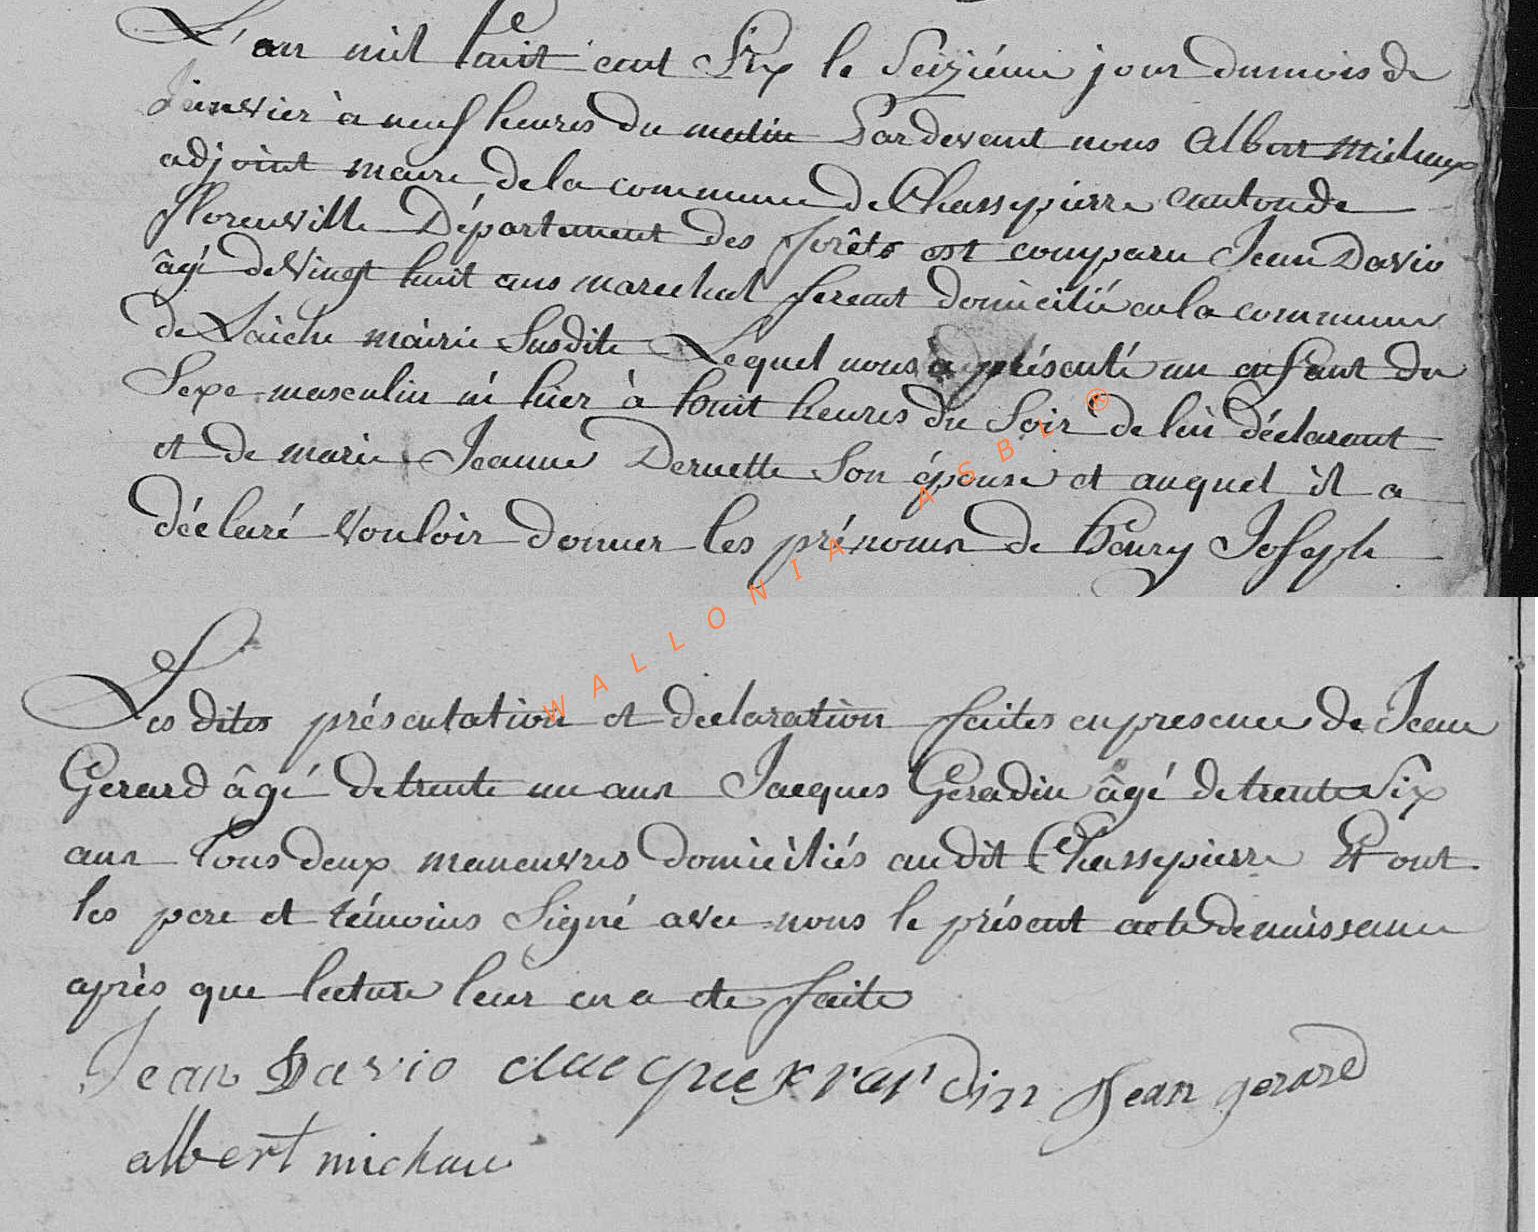 L'an mil huit cent Six le Seiziéme jour du mois de
Janvier à neuf heures du matin Pardevant nous Albert Michaux
adjoint maire de la commune de Chassepierre canton de
florenville Département des forêts est comparu Jean Davio
âgé de Vingt huit ans marechal ferant domicilié en la commune
de Laiche mairie Susdite Lequel nous a présenté un enfant du
Sexe masculin né hier à huit heures du Soir de lui déclarant
et de marie Jeanne Dernette Son épouse et auquel il a
déclaré Vouloir donner les prénoms de Henry Joseph
Les dites présentation et declaration faites en presence de Jean
Gerard âgé de trente un ans Jacques Geradin âgé de trente Six
ans tous deux maneuvres domiciliés au dit Chassepierre Et ont
les pere et témoins Signé avec nous le présent acte de naissance
après que lecture leur en a ete faite
Jean Davio Jean gerard
albert michaux
WALLONIA ASBL ®